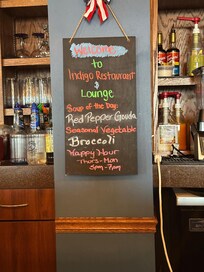 Welcome
to
Indigo Restaurant
&
Lounge
Soup of the Day:
Red Pepper Gouda
Seasonal Vegetable
Broccoli
Happy Hour
Thurs-Mon
5pm-7pm